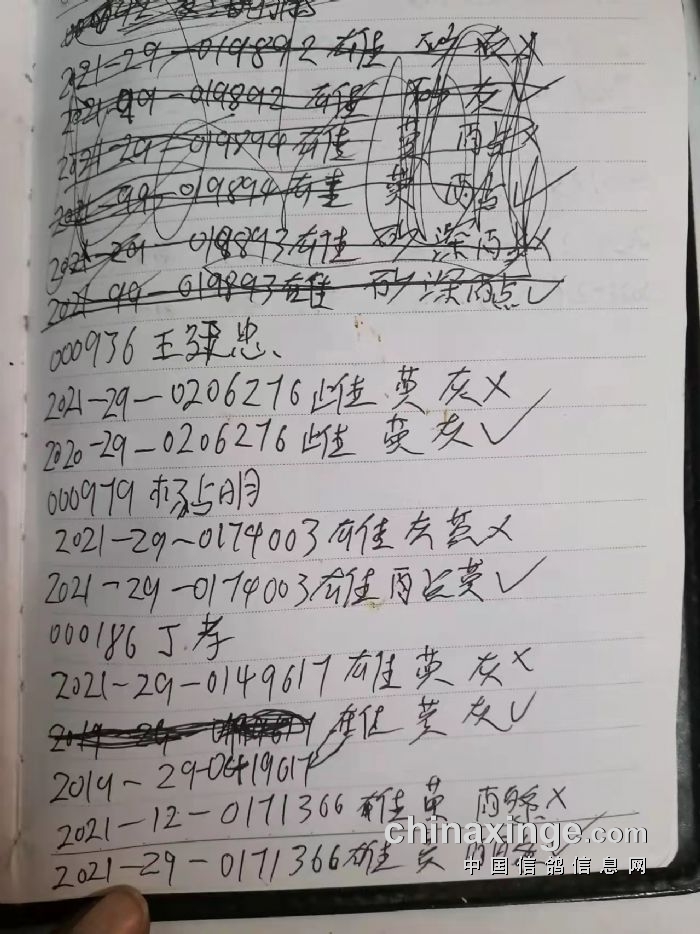 2021-29-019892 雄 砂 灰 X
2021-99-019892 雄 砂 灰 ✓
2021-29-019894 雄 英 雨点 X
2021-99-019894 雄 英 雨点 ✓
2021-29-019893 雄 砂 深雨点 X
2021-99-019893 雄 砂 深雨点 ✓
000936 王建忠
2021-29-0206276 雌 英 灰 X
2020-29-0206276 雌 英 灰 ✓
000979 杨占明
2021-29-0174003 雄 灰 英 X
2021-29-0174003 雄 雨点 英 ✓
000186 丁孝
2021-29-0149617 雄 英 灰 X
雄 英 灰 ✓
2019-29-0419617
2021-12-0171366 雄 英 雨点 X
2021-29-0171366 雄 英 雨点 ✓
chinaxinge.com
中国信鸽信息网